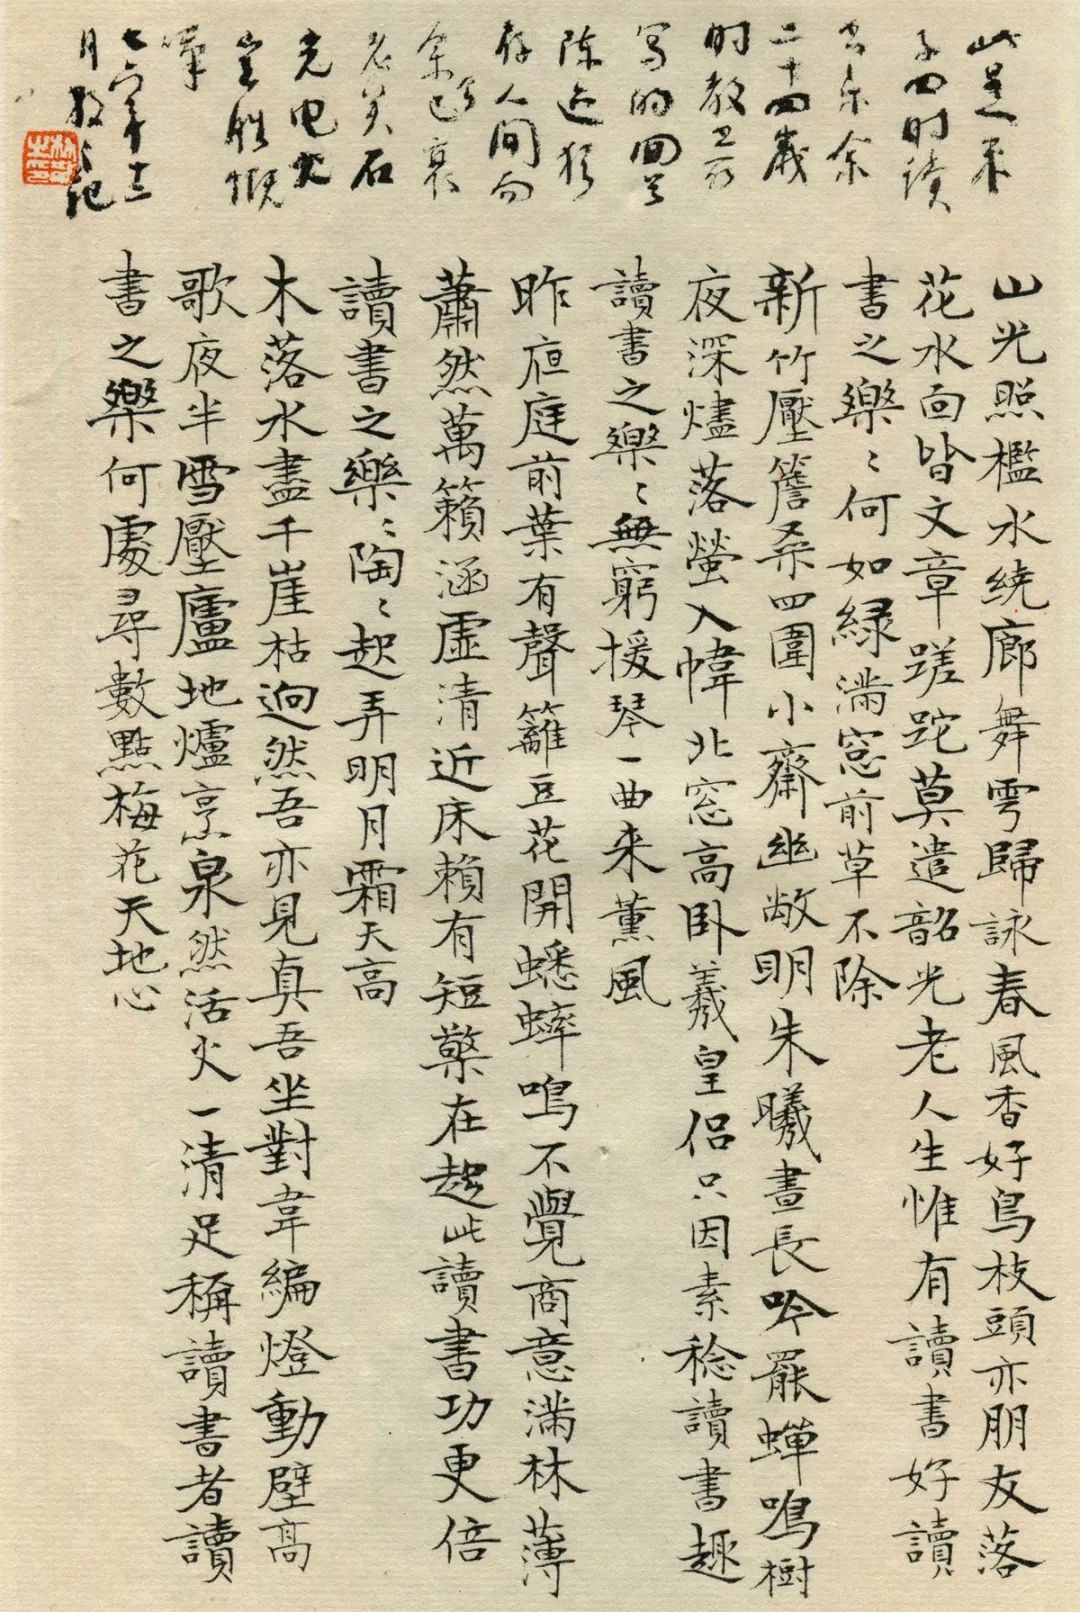 此是朱
子四时读
书乐余
二十四岁
时教
写的回首
陈迹犹
存人间而
余已衰
老矣石
光电火
岂胜慨
嘆
七六年十二
月散之记
林散之印
山光照檻水繞廊舞雩歸詠春風香好鳥枝頭亦朋友落
花水面皆文章蹉跎莫遣韶光老人生惟有讀書好讀
書之樂〻何如綠滿窓前草不除
新竹壓簷桑四圍小齋幽敞明朱曦晝長吟罷蟬鳴樹
夜深燼落螢入幃北窓高卧羲皇侶只因素稔讀書趣
讀書之樂〻無窮援琴一曲来薰風
昨夜庭前葉有聲籬豆花開蟋蟀鳴不覺商意滿林薄
蕭然萬籟涵虛清近床賴有短檠在趁此讀書功更倍
讀書之樂〻陶〻起弄明月霜天高
木落水盡千崖枯迥然吾亦見真吾坐對韋編燈動壁高
歌夜半雪壓廬地爐烹泉然活火一清足稱讀書者讀
書之樂何處尋數點梅花天地心